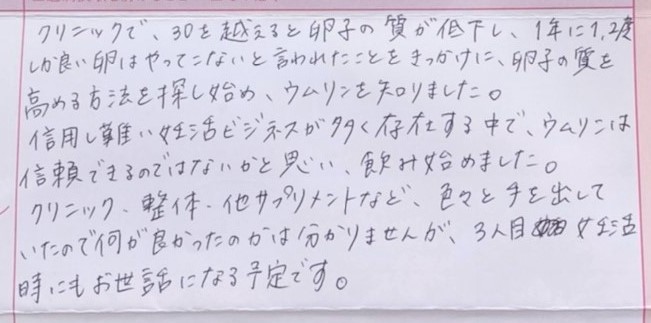 クリニックで、30を越えると卵子の質が低下し、1年に1,2度
しか良い卵はやってこないと言われたことをきっかけに、卵子の質を
高める方法を探し始め、ウムリンを知りました。
信用し難い妊活ビジネスが多く存在する中で、ウムリンは
信頼できるのではないかと思い、飲み始めました。
クリニック・整体・他サプリメントなど、色々と手を出して
いたので何が良かったのかは分かりませんが、3人目妊活
時にもお世話になる予定です。